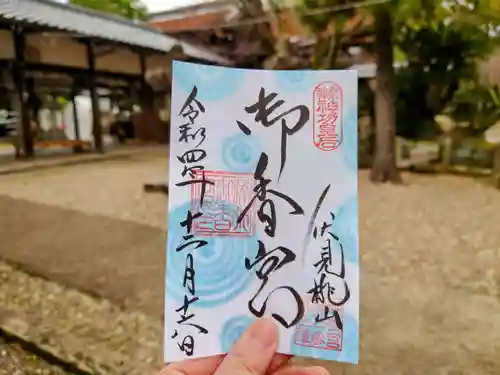 伏見桃山
御香宮
令和四年十二月十六日